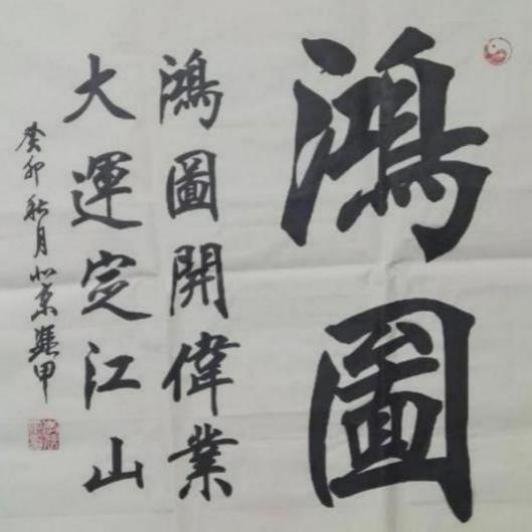 鴻圖
鴻圖開偉業
大運定江山
癸卯秋月北京龔甲